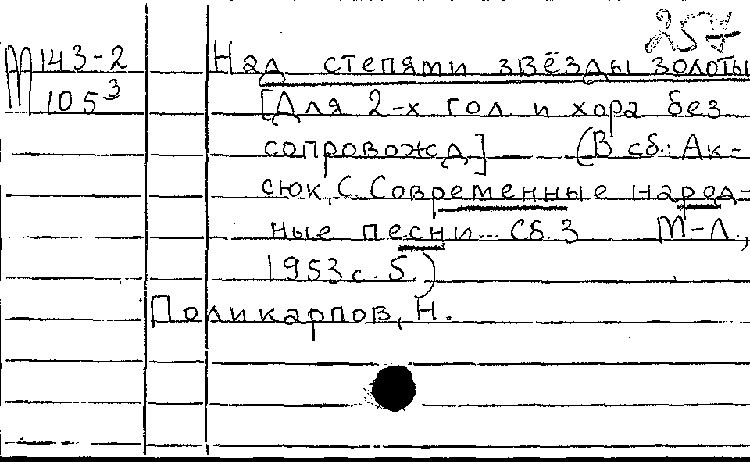 257
М 143-2 Над степями звёзды золоты
105³ [Для 2-х гол. и хора без
сопровожд.] (В сб.: Ак-
сюк, С. Современные народ-
ные песни... Сб. 3 М-Л.,
1953 с. 5.)
Поликарпов, Н.